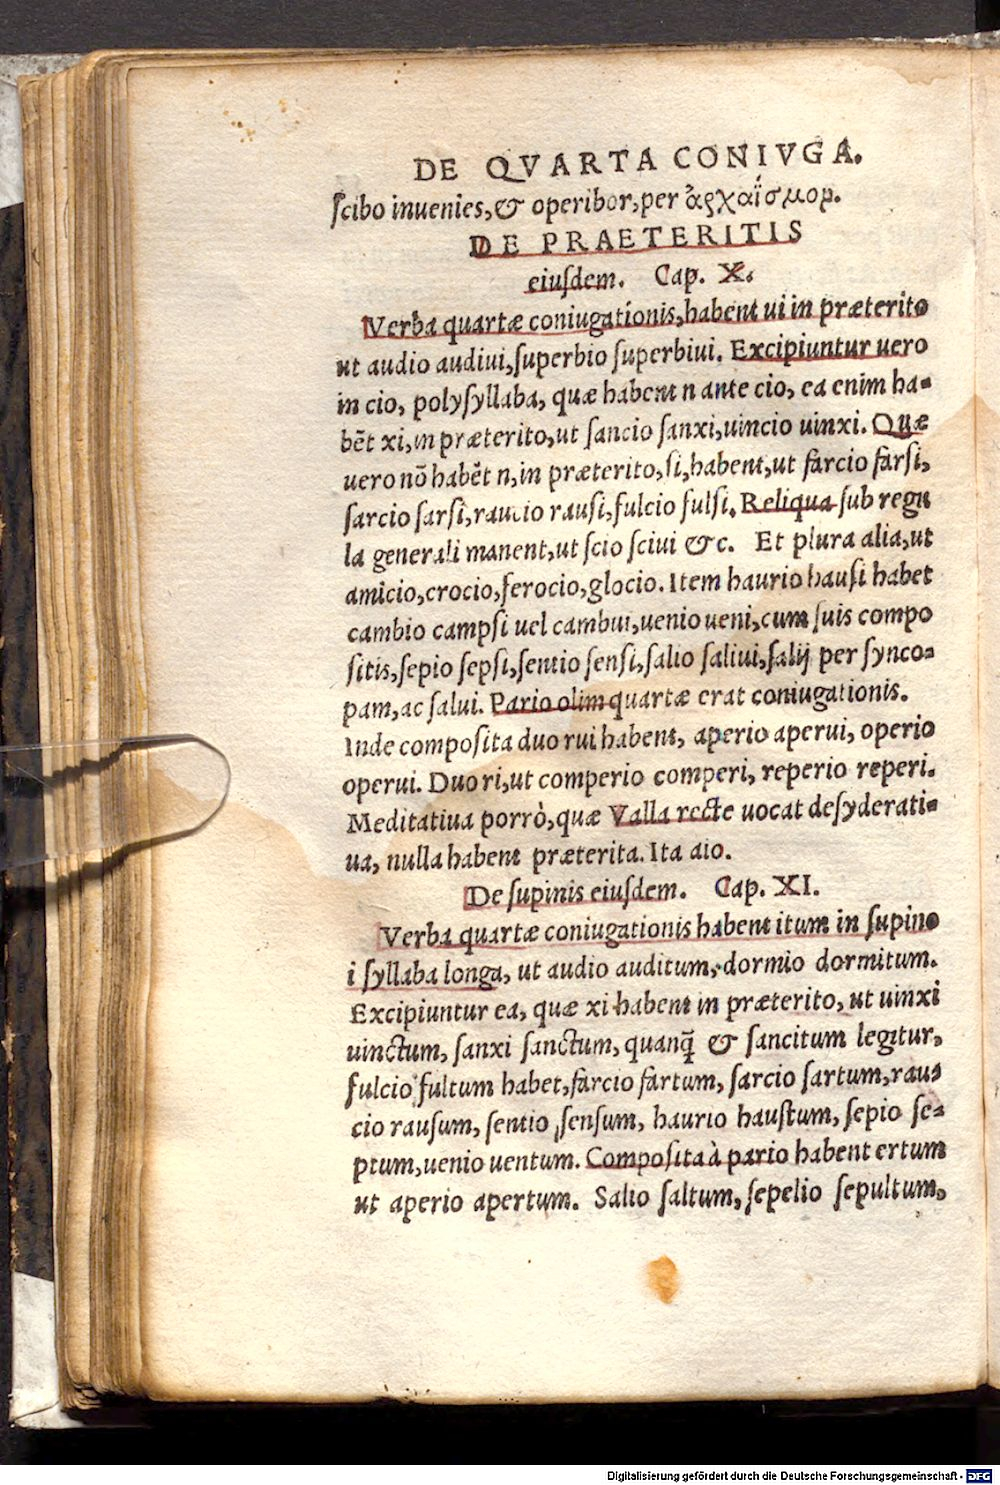 DE QVARTA CONIVGA.
ſcibo inuenies, & operibor, per ἀρχαΐσμον.
DE PRAETERITIS
eiuſdem. Cap. X.
Verba quartæ coniugationis, habent ui in præterito
ut audio audiui, ſuperbio ſuperbiui. Excipiuntur uero
in cio, polyſyllaba, quæ habent n ante cio, ea enim ha-
bēt xi, in præterito, ut ſancio ſanxi, uincio uinxi. Quæ
uero nō habēt n, in præterito, ſi, habent, ut farcio farſi,
ſarcio ſarſi, raucio rauſi, fulcio fulſi. Reliqua ſub regu
la generali manent, ut ſcio ſciui &c. Et plura alia, ut
amicio, crocio, ferocio, glocio. Item haurio hauſi habet
cambio campſi uel cambui, uenio ueni, cum ſuis compo
ſitis, ſepio ſepſi, ſentio ſenſi, ſalio ſaliui, ſalij per ſynco-
pam, ac ſalui. Pario olim quartæ erat coniugationis.
Inde compoſita duo rui habent, aperio aperui, operio
operui. Duo ri, ut comperio comperi, reperio reperi.
Meditatiua porrò, quæ Valla recte uocat deſyderati-
ua, nulla habent præterita. Ita aio.
De ſupinis eiuſdem. Cap. XI.
Verba quartæ coniugationis habent itum in ſupino
i ſyllaba longa, ut audio auditum, dormio dormitum.
Excipiuntur ea, quæ xi habent in præterito, ut uinxi
uinctum, ſanxi ſanctum, quanq̄ & ſancitum legitur,
fulcio fultum habet, farcio fartum, ſarcio ſartum, rau-
cio rauſum, ſentio ſenſum, haurio hauſtum, ſepio ſe-
ptum, uenio uentum. Compoſita à pario habent ertum
ut aperio apertum. Salio ſaltum, ſepelio ſepultum,
Digitalisierung gefördert durch die Deutsche Forschungsgemeinschaft - DFG